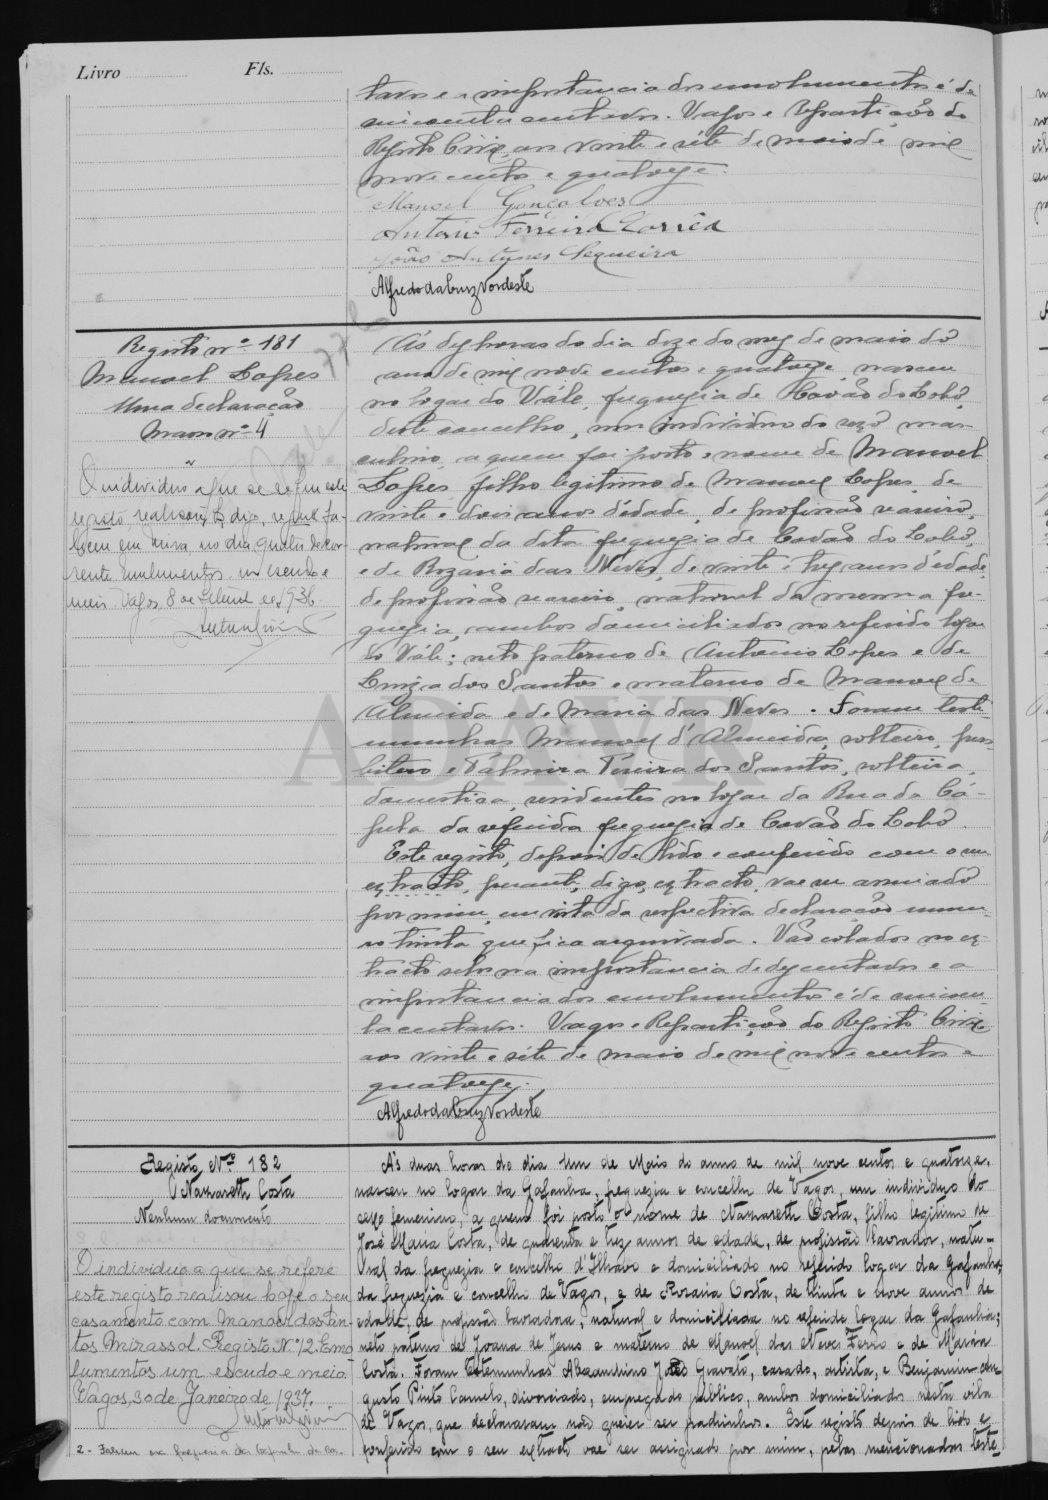 Livro Fls.
tavos e a importancia dos emolumentos é de
cincoenta centavos. Vagos e Repartição do
Registo Civil, aos vinte e séte de maio de mil
nove centos e quatorze.
Manoel Gonçalves
Antonio Ferreira Corrêa
João Antunes Sequeira
Alfredo da Cruz Nordeste
Registo nº 181
Manoel Lopes
Uma declaração
Maço nº 4
O individuo a que se refere este
registo realisou, digo, registo fa-
leceu em Mira no dia quatro do cor-
rente. Emolumentos um escudo e
meio. Vagos, 8 de de 1936.
Ás dez horas do dia doze do mez de maio do
anno de mil nove centos e quatorze, nasceu
no logar do Vále, freguezia de Covão do Lobo,
deste concelho, um individuo do sexo mas-
culino, a quem foi posto o nome de Manoel
Lopes, filho legitimo de Manoel Lopes, de
vinte e dois annos d'edade, de profissão seareiro,
natural da dita freguezia de Covão do Lobo,
e de Rozaria das Neves, de vinte e trez annos d'edade,
de profissão seareiro, natural da mesma fre-
guezia, ambos domiciliados no referido logar
do Vále; neto paterno de Antonio Lopes e de
Luiza dos Santos e materno de Manoel de
Almeida e de Maria das Neves. Foram teste-
munhas Manoel d'Almeida, solteiro, pres-
bitero e Palmira Pereira dos Santos, solteira,
domestica, residentes no logar da Rua da Ca-
pela da referida freguezia de Covão do Lobo.
Este registo, depois de lido e conferido com o seu
extracto, perante, digo, extracto, vae ser assinado
por mim, em vista da respectiva declaração nume-
ro trinta que fica arquivada. Vão colados no ex-
tracto selos na importancia de dez centavos e a
importancia dos emolumentos é de cincoen-
ta centavos. Vagos e Repartição do Registo Civil
aos vinte e séte de maio de mil nove centos e
quatorze.
Alfredo da Cruz Nordeste
ADAVR
Registo Nº 182
Nazareth Costa
Nenhum documento
O individuo a que se refere
este registo realisou hoje o seu
casamento com Manoel dos San-
tos Mirassol. Registo Nº 12. Emo-
lumentos um escudo e meio.
Vagos, 30 de Janeiro de 1937.
2 - Faleceu na freguesia da
Ás duas horas do dia um de Maio do anno de mil nove centos e quatorze,
nasceu no logar da Gafanha, freguezia e concelho de Vagos, um individuo do
sexo femenino, a quem foi posto o nome de Nazareth Costa, filho legitimo de
José Maria Costa, de quarenta e trez annos de edade, de profissão lavrador, natu-
ral da freguezia e concelho d'Ilhavo e domiciliado no referido logar da Gafanha,
da freguezia e concelho de Vagos, e de Rosaria Costa, de trinta e nove annos de
edade, de profissão lavradora, natural e domiciliada no referido logar da Gafanha;
neto paterno de Joana de Jesus e materno de Manoel das Neves Ferro e de Maria
Costa. Foram testemunhas Alexandrino José Gravato, casado, artista, e Benjamim Au-
gusto Pinto Camelo, divorciado, empregado publico, ambos domiciliados nesta vila
de Vagos, que declararam não querer ser padrinhos. Este registo depois de lido e
conferido com o seu extracto vae ser assignado por mim, pelas mencionadas teste-